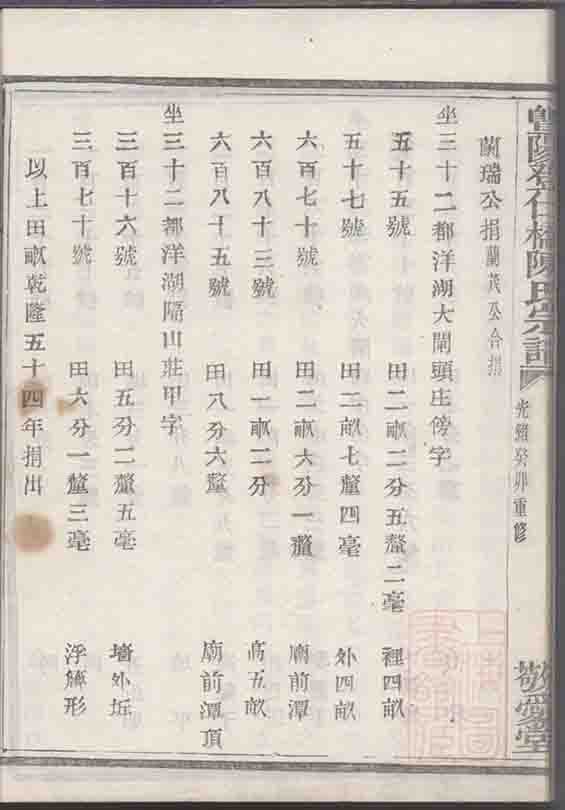 暨陽登仕橋陳氏宗譜
光緒癸卯重修
敬愛堂
蘭瑞公捐蘭茂公合捐
坐三十二都洋湖大閘頭庄傍字
五十五號 田二畝二分五釐二毫 裡四畝
五十七號 田二畝七釐四毫 外四畝
六百七十號 田二畝六分一釐 廟前潭
六百八十三號 田一畝二分 高五畝
六百八十五號 田八分六釐 廟前潭頂
坐三十二都洋湖隔山莊甲字
三百十六號 田五分二釐五毫 墻外坵
三百七十號 田六分一釐三毫 浮𥖄形
以上田畝乾隆五十四年捐出